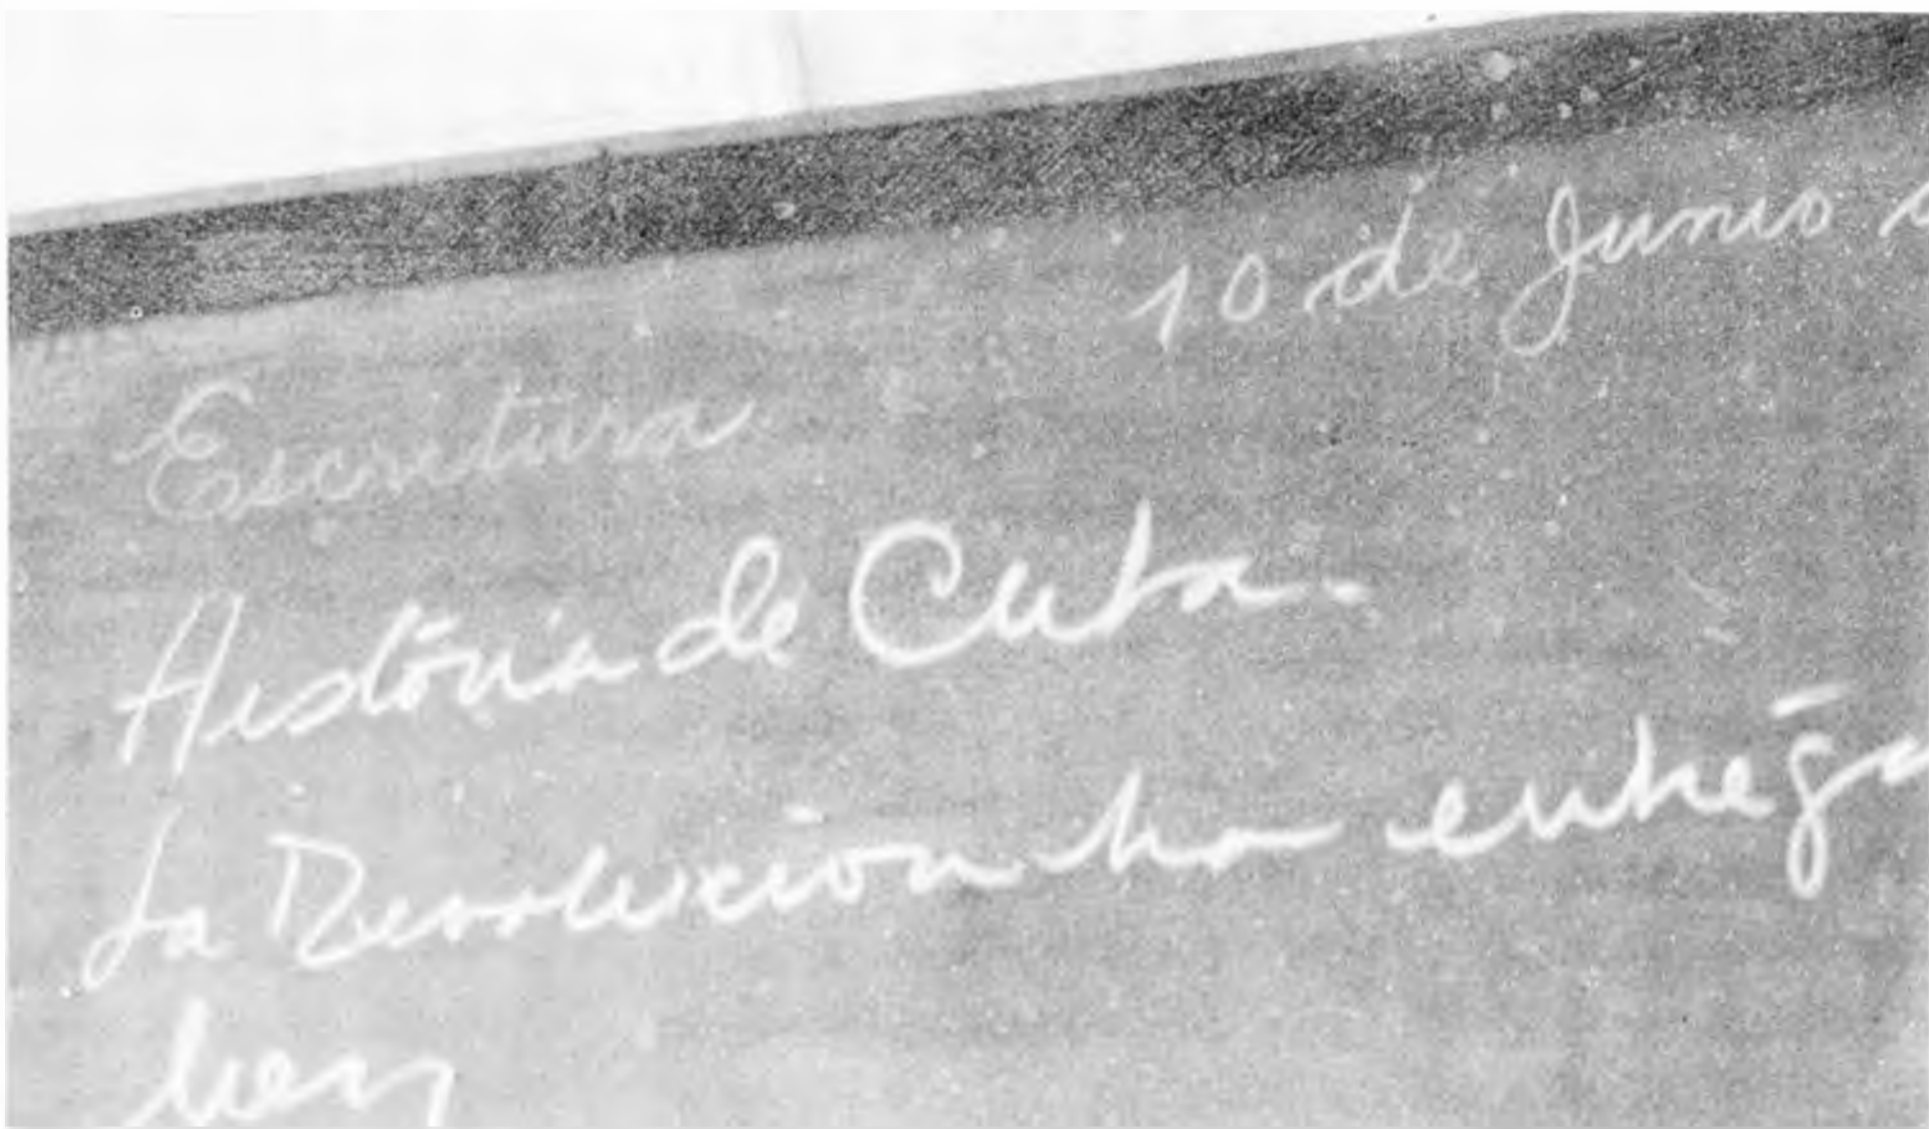 10 de Junio
Escritura
Historia de Cuba.
La Revolución ha entrega